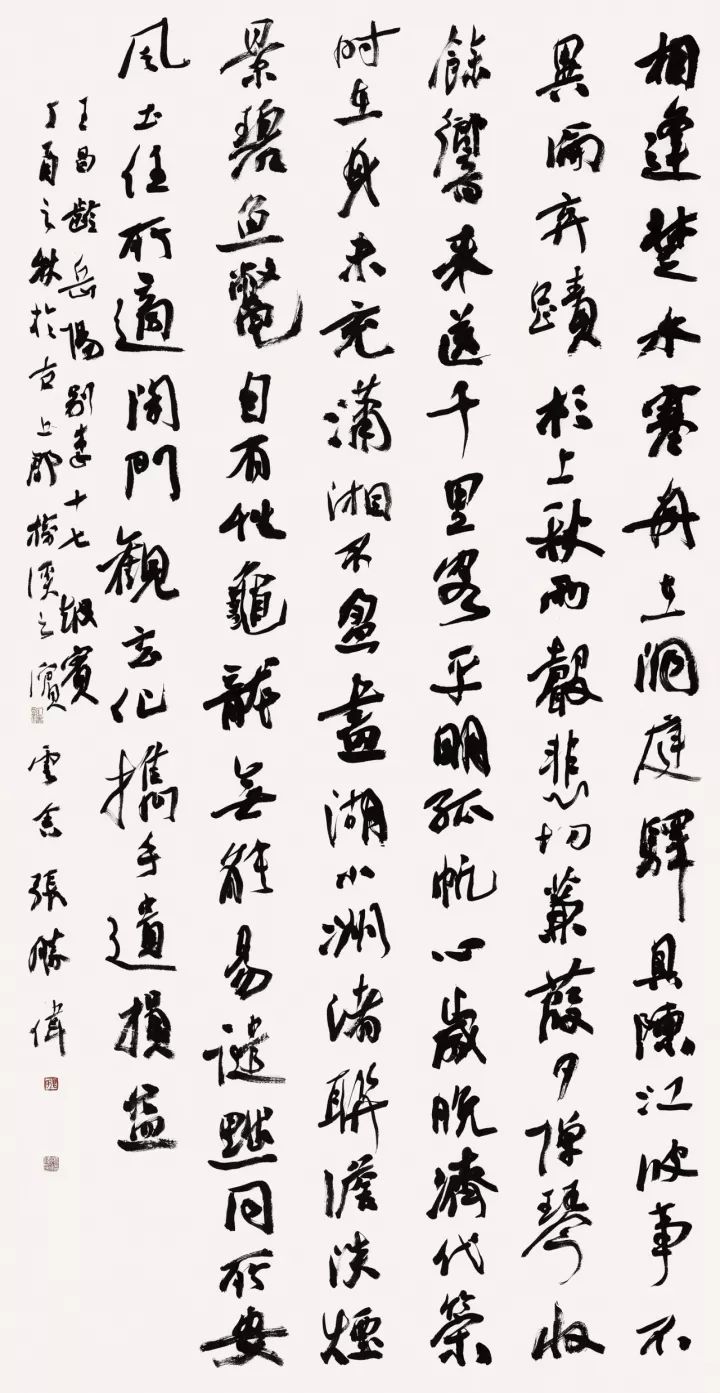 相逢楚水寒舟在洞庭驛具陳江波事不
異淪棄蹟杉上秋雨聲悲切蒹葭夕彈琴收
餘響來送千里客平明孤帆心歲晚濟代策
时在身未充瀟湘不盈畫湖小洲渚聯澹淡煙
景碧魚鼈自有性龜龍無能易譴黜同所安
風土任所適閉門觀玄化攜手遺損益
王昌齡岳陽別李十七越賓
丁酉之秋於古上郡榆溪之濱 雲舍張勝偉